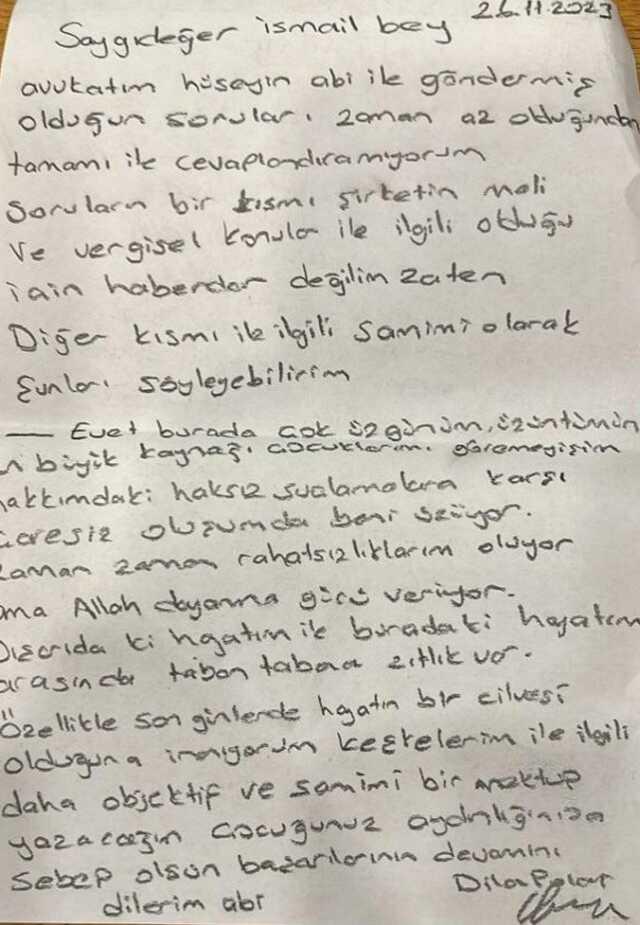 26.11.2023
Saygıdeğer ismail bey
avukatım hüseyin abi ile göndermiş
olduğun soruları zaman az olduğundan
tamamı ile cevaplandıramıyorum
Soruların bir kısmı şirketin mali
ve vergisel konular ile ilgili olduğu
için haberdar değilim zaten
Diğer kısmı ile ilgili samimi olarak
şunları söyleyebilirim
— Evet burada çok üzgünüm, üzüntümün
en büyük kaynağı çocuklarımı göremeyişim
hakkımdaki haksız suçlamalara karşı
çaresiz oluşumda beni üzüyor.
zaman zaman rahatsızlıklarım oluyor
ama Allah dayanma gücü veriyor.
Dışarıda ki hayatım ile buradaki hayatım
arasında taban tabana zıtlık var.
Özellikle son günlerde hayatın bir cilvesi
olduğuna inanıyorum keşkelerim ile ilgili
daha objektif ve samimi bir mektup
yazacağım çocuğunuz aydınlığınıza
Sebep olsun başarılarının devamını
dilerim abi
Dila Polat